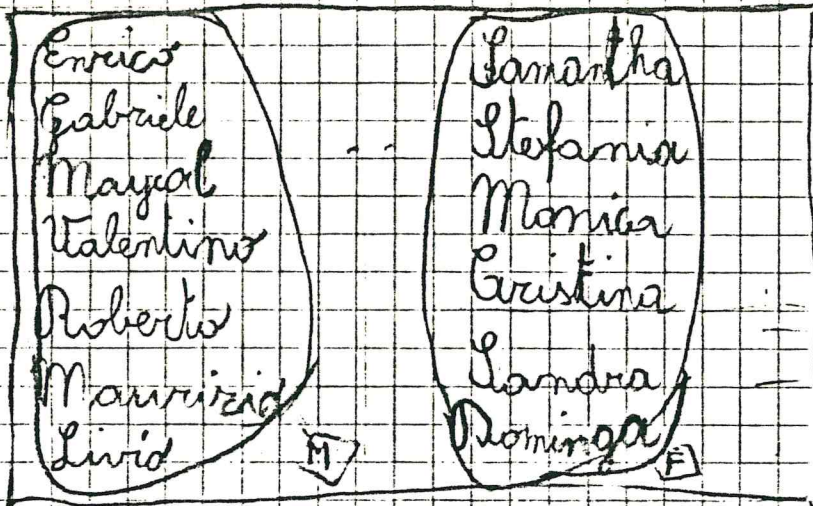 Enrico
Gabriele
Maycol
Valentino
Roberto
Maurizio
Livio
M
Samantha
Stefania
Monica
Cristina
Sandra
Dominga
F